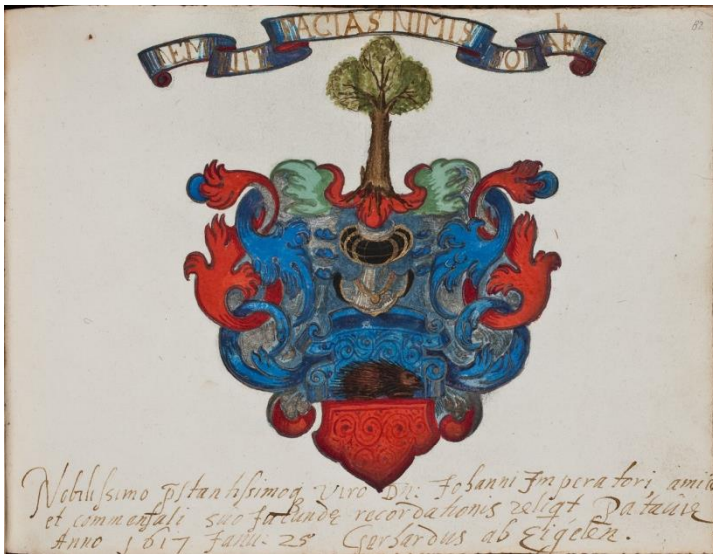 FACIAS NIMIS
Nobilissimo pstantissimoq Viro Dn: Johanni Imperatori, amico
et commensali suo Jucundę recordationis reliqt Patavie
Anno 1617 Janu: 25 Gerhardus ab Eigelen.